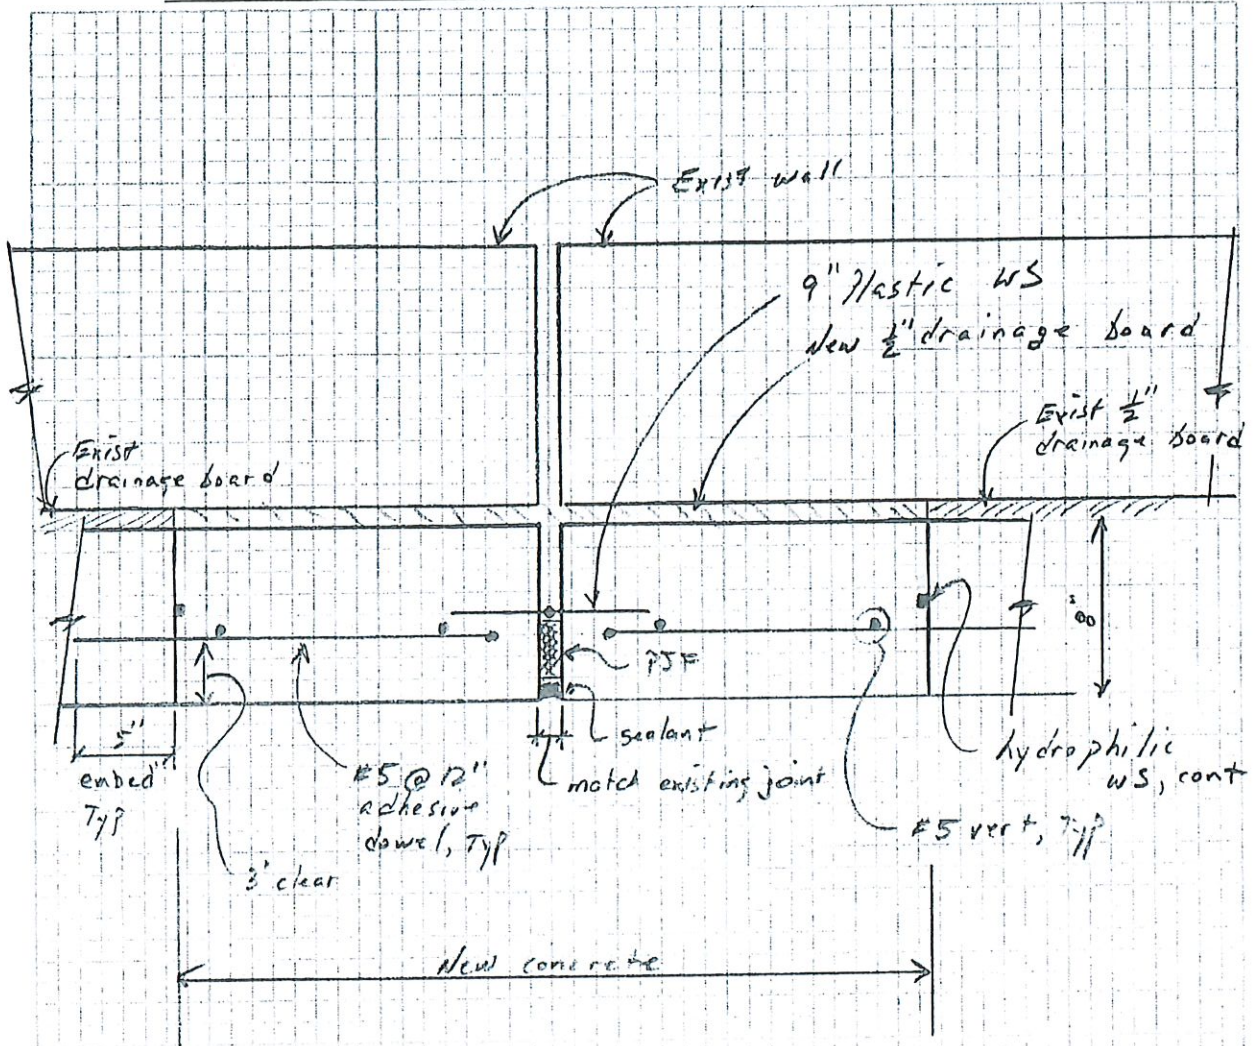 Exist wall
9" Plastic WS
New 1/2" drainage board
Exist 1/2"
drainage board
Exist
drainage board
8"
PJF
sealant
match existing joint
hydrophilic
WS, cont
5"
embed
Typ
#5 @ 12"
adhesive
dowel, Typ
#5 vert, Typ
3" clear
New concrete